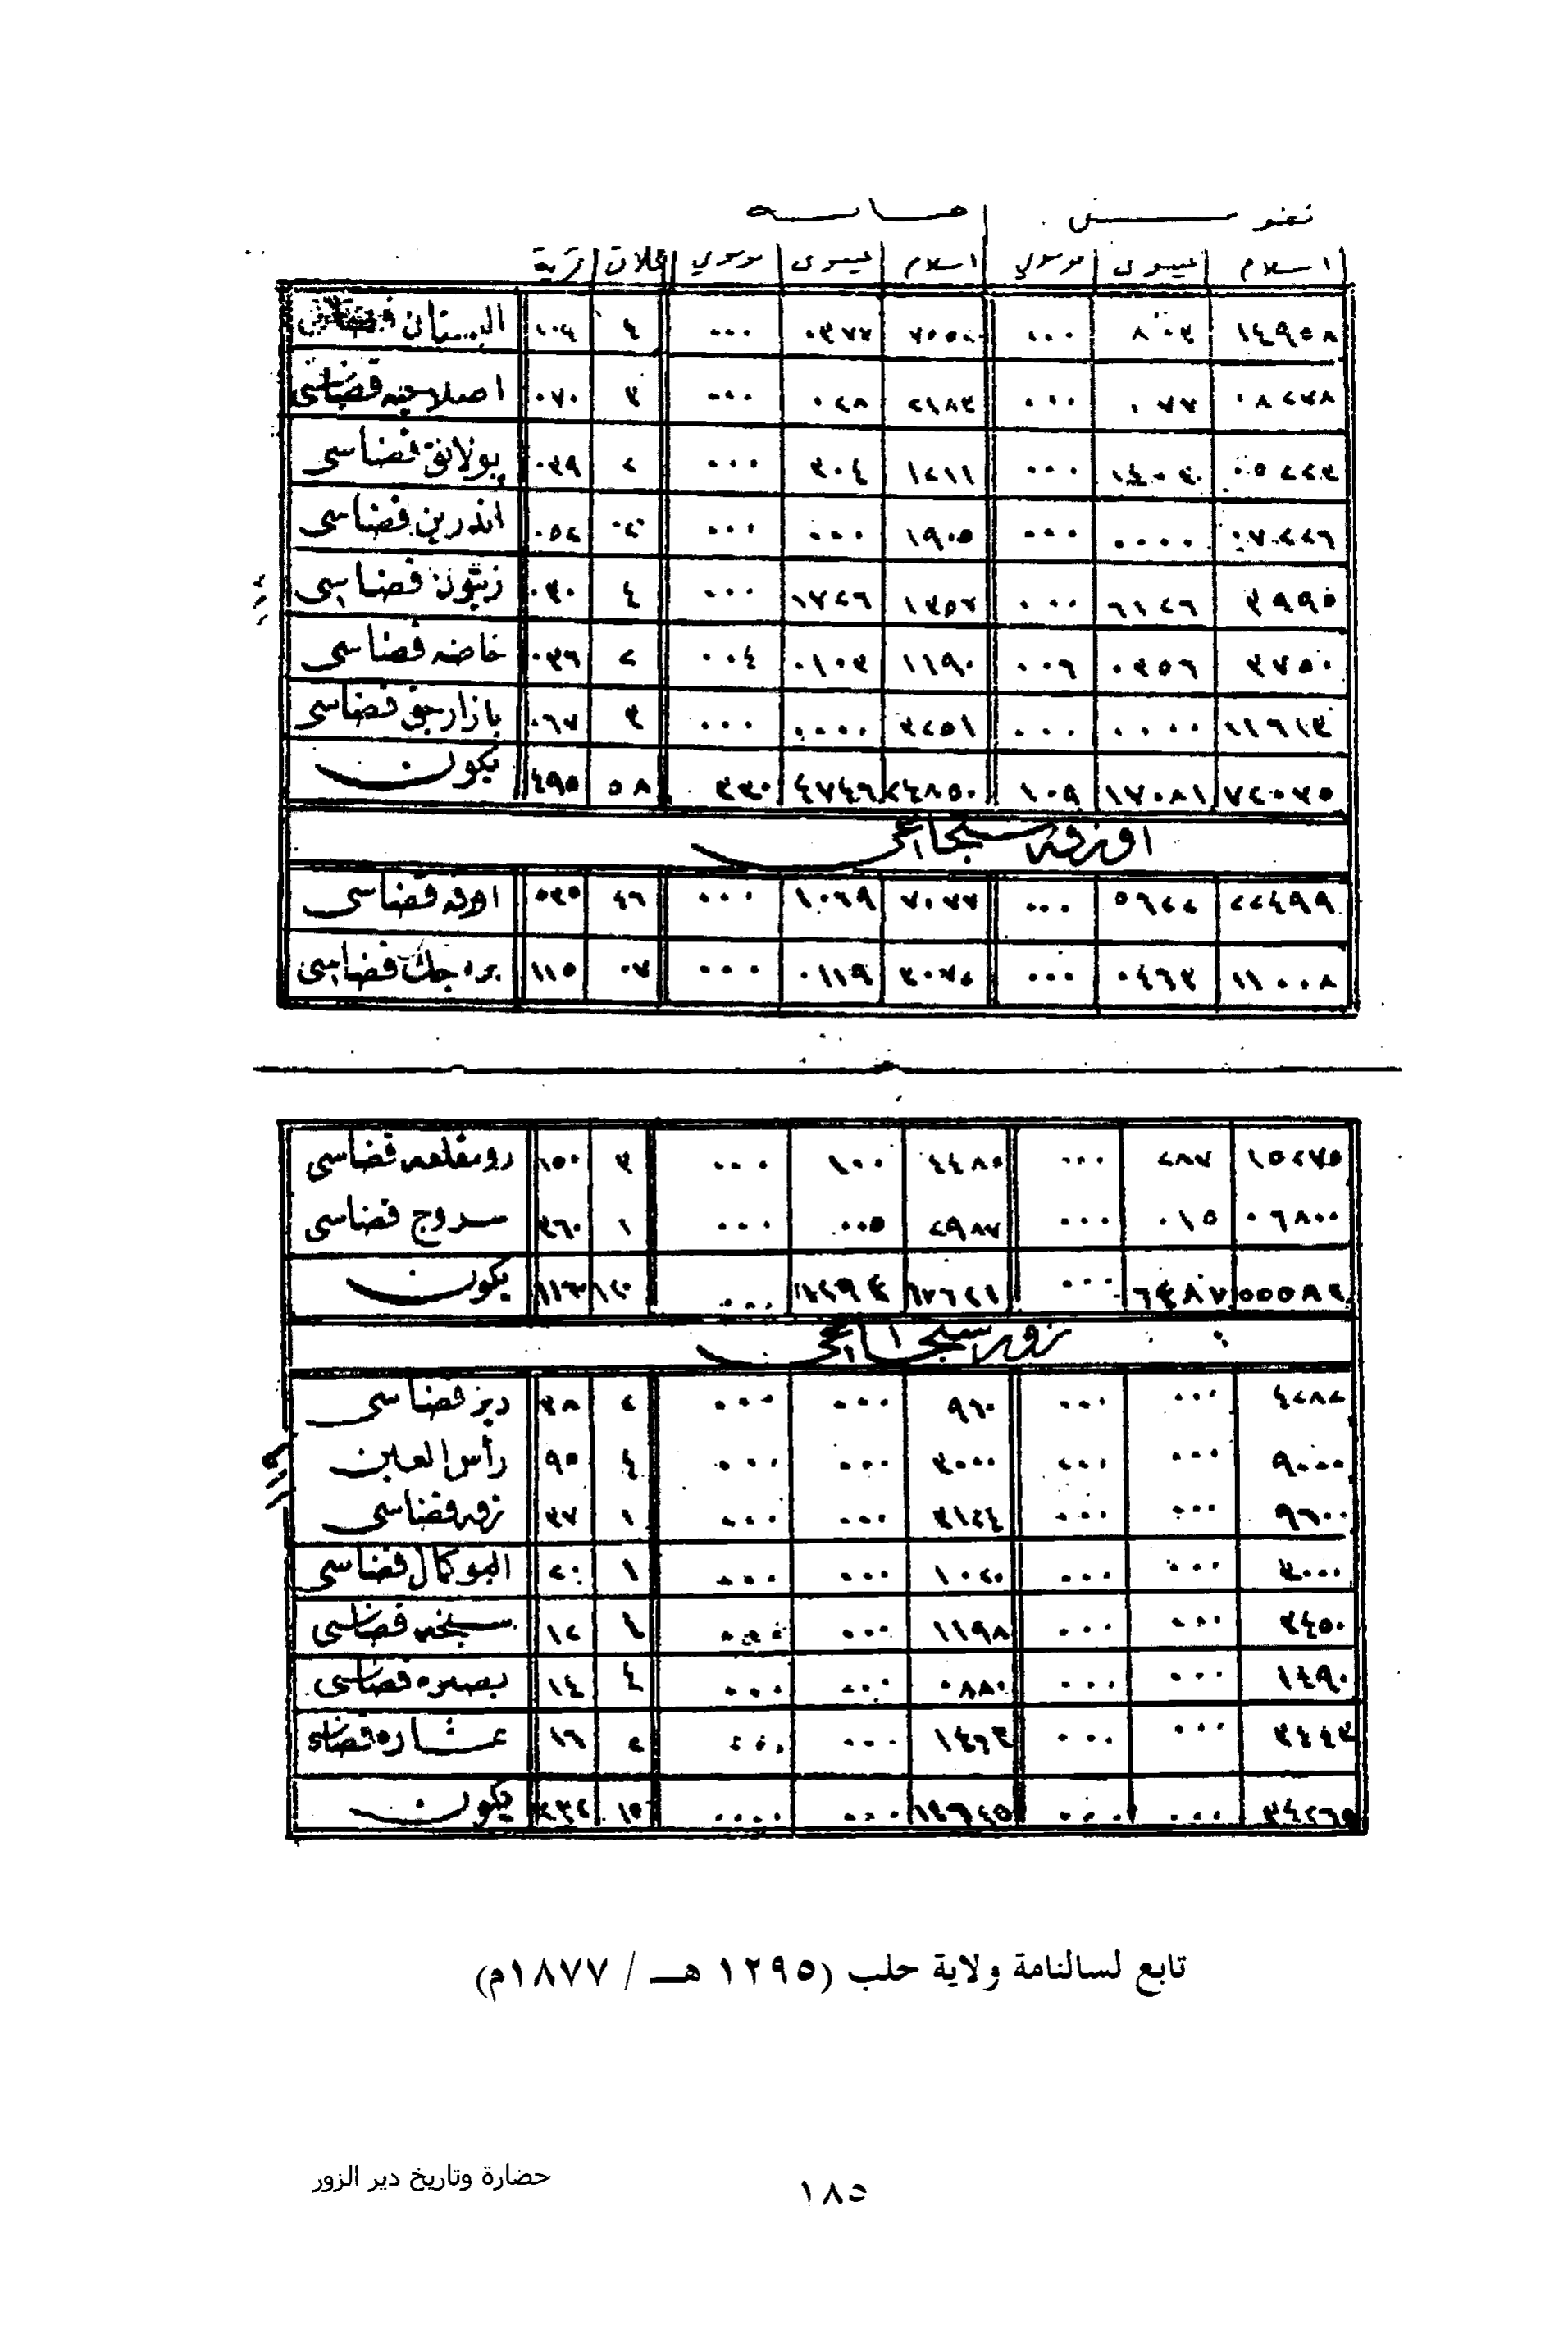 نفوس | خانه
اسلام | عيسوى | موسوي | اسلام | عيسوى | موسوي | محلات | قرية
١٤٩٥٨ | ٨٠٣ | ٠٠٠ | ٧٥٥٠ | ٠٣٧٧ | ٠٠٠ | ٤ | البستان قضاسى
٠٨٢٧٨ | ٠٧٧ | ٠٠٠ | ٢١٨٣ | ٠٢٨ | ٠٠٠ | ٣ | ٠٧٠ | اصلاحيه قضاسى
٠٥٢٢٣ | ١٤٠٣ | ٠٠٠ | ١٢١١ | ٣٠٤ | ٠٠٠ | ٢ | ٠٣٩ | بولانق قضاسى
٠٧٢٢٦ | ٠٠٠٠ | ٠٠٠ | ١٩٠٥ | ٠٠٠ | ٠٠٠ | ٠٢ | ٠٥٢ | اندرين قضاسى
٣٩٩٥ | ٦١٢٦ | ٠٠٠ | ١٣٥٢ | ١٧٢٦ | ٠٠٠ | ٤ | ٠٣٠ | زيتون قضاسى
٣٧٥٠ | ٠٣٥٦ | ٠٠٦ | ١١٩٠ | ٠١٠٣ | ٠٠٤ | ٢ | ٠٣٦ | خاصه قضاسى
١١٦١٣ | ٠٠٠٠ | ٠٠٠ | ٣٢٥١ | ٠٠٠٠ | ٠٠٠ | ٣ | ٠٦٧ | بازارجق قضاسى
٧٢٠٧٥ | ١٧٠٨١ | ١٠٩ | ٢٤٨٥٠ | ٤٧٤٦ | ٣٣٠ | ٥٨ | ٤٩٥ | يكون
اورفه سنجاغى
٢٢٤٩٩ | ٥٦٢٢ | ٠٠٠ | ٧٠٧٧ | ١٠٦٩ | ٠٠٠ | ٤٦ | ٥٣٥ | اورفه قضاسى
١١٠٠٨ | ٠٤٦٣ | ٠٠٠ | ٣٠٧٠ | ٠١١٩ | ٠٠٠ | ٠٧ | ١١٥ | بره جك قضاسى
١٥٢٧٥ | ٢٨٧ | ٠٠٠ | ٤٤٨٥ | ١٠٠ | ٠٠٠ | ٣ | ١٥٠ | رومقلعه قضاسى
٠٦٨٠٠ | ٠١٥ | ٠٠٠ | ٢٩٨٧ | ٠٠٥ | ٠٠٠ | ١ | ٣٦٠ | سروج قضاسى
٠٠٠ | ٠٠٠ | يكون
زور سنجاغى
٤٢٨٢ | ٠٠٠ | ٠٠٠ | ٩٦٠ | ٠٠٠ | ٠٠٠ | ٢ | ٣٨ | دير قضاسى
٩٠٠٠ | ٠٠٠ | ٠٠٠ | ٣٠٠٠ | ٠٠٠ | ٠٠٠ | ٤ | ٩٥ | رأس العين
٩٦٠٠ | ٠٠٠ | ٠٠٠ | ٣١٢٤ | ٠٠٠ | ٠٠٠ | ١ | ٣٧ | رقه قضاسى
٣٠٠٠ | ٠٠٠ | ٠٠٠ | ١٠٢٠ | ٠٠٠ | ٠٠٠ | ١ | ٢٠ | البوكمال قضاسى
٣٤٥٠ | ٠٠٠ | ٠٠٠ | ١١٩٨ | ٠٠٠ | ٠٠٠ | ١٢ | سبخه قضاسى
١٤٩٠ | ٠٠٠ | ٠٠٠ | ٠٨٨٠ | ٠٠٠ | ٠٠٠ | ٤ | ١٤ | بصيره قضاسى
٣٤٤٣ | ٠٠٠ | ٠٠٠ | ١٤٦٣ | ٠٠٠ | ٠٠٠ | ٢ | ١٦ | عشاره قضاء
٣٤٢٦٥ | ٠٠٠ | ٠٠٠ | ١٤٦٤٥ | ٠٠٠ | ٠٠٠٠ | يكون
تابع لسالنامة ولاية حلب (١٢٩٥ هـ / ١٨٧٧م)
١٨٥
حضارة وتاريخ دير الزور